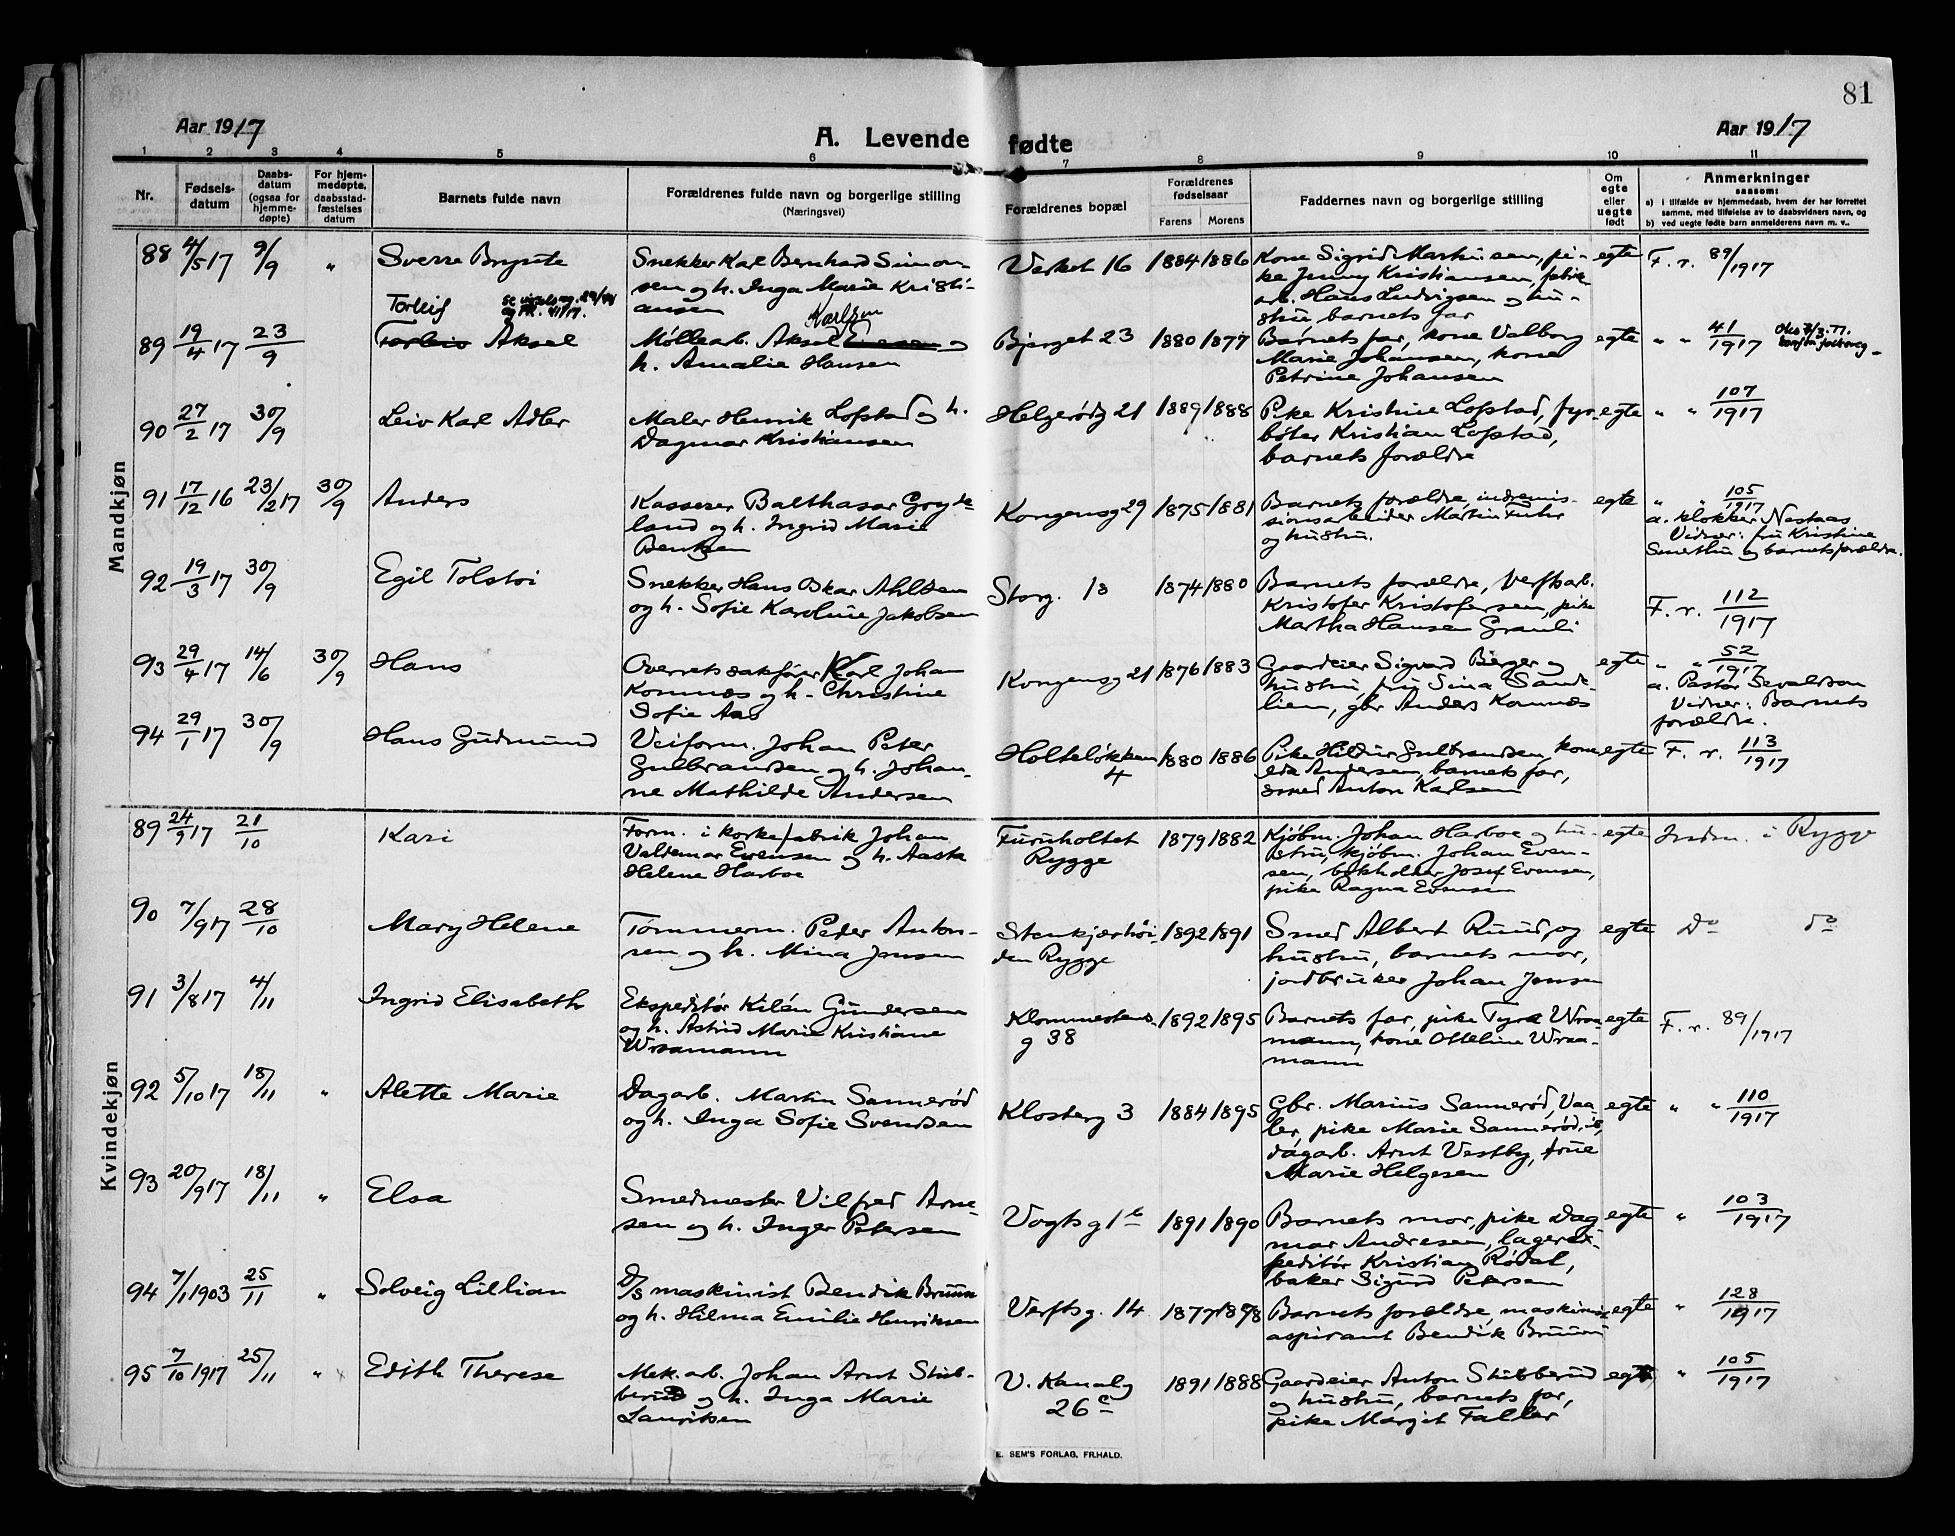 81
Aar 1917
A. Levende fødte
Aar 1917
1 2 3 4 5 6 7 8 9 10 11
Nr.
Fødsels-
datum
Daabs-
datum
(ogsaa for
hjemme-
døpte)
For hjem-
medøpte,
daabsstad-
fæstelses
datum
Barnets fulde navn
Forældrenes fulde navn og borgerlige stilling
(Næringsvei)
Forældrenes bopæl
Forældrenes
fødselsaar
Farens Morens
Faddernes navn og borgerlige stilling
Om
egte
eller
uegte
født
Anmerkninger
saasom:
a) i tilfælde av hjemmedaab, hvem der har forrettet
samme, med tilføielse av to daabsvidners navn, og
b) ved uegte fødte barn anmelderens navn m. v..
Mandkjøn
88 4/5 17 9/9 " Sverre Brynte
Snekker Karl Bernhard Simon-
sen og h. Inga Marie Kristi-
ansen
Verket 16 1884 1886
Kone Sigrid Marthinsen, pi-
ke Jenny Kristiansen, fabrik-
arb. Hans Ludvigsen og hu-
stru barnets far
egte F. r. 89/1917
89 19/4 17 23/9 Torleif
Aksel
Møllearb. Aksel Karlsen og
h. Amalie Hansen
Bjerget 23 1880 1877
Barnets far, kone Valborg
Marie Johansen, kone
Petrine Johansen
egte " " 41/1917
90 27/2 17 30/9 Leiv Karl Adler
Maler Henrik Lofstad og h.
Dagmar Kristiansen
Helgerødg 21 1889 1888
Pike Kristine Lofstad, fyr-
bøter Kristian Lofstad,
barnets forældre
egte " " 107/1917
91 17/12 16 23/2 17 30/9 Anders
Kasserer Balthasar Gryde-
land og h. Ingrid Marie
Bentzen
Kongensg 29 1875 1881
Barnets forældre, indremis-
sionsarbeider Martin Fuhr
og hustru.
egte " " 105/1917
a. klokker Nestaas
Vidner: fru Kristine
og barnets forældre.
92 19/3 17 30/9 Egil Tolstoi
Snekker Hans Oskar Ahlsen
og h. Sofie Karoline Jakobsen
Storg. 18 1874 1880
Barnets forældre, verftsarb.
Kristofer Kristofersen, pike
Martha Hansen Granli
F. r. 112/1917
93 29/4 17 14/6 30/9 Hans
Overretssakfører Karl Johan
Kornnæs og h. Christine
Sofie Aas
Kongensg 21 1876 1883
Gaardeier Sigvard Berger og
hustru, frk Sina Sande-
lien, gbr Anders Kornnæs
egte " " 52/1917
a. Pastor Sevaldson
Vidner: Barnets
forældre.
94 29/1 17 30/9 Hans Gudmund
Veiform. Johan Peter
Gulbrandsen og h. Johan-
ne Mathilde Andersen
Holteløkken 1880 1886
4
Pike Hildur Gulbrandsen, kone
Andersen, barnets far,
smed Anton Karlsen
egte F. r. 113/1917
Kvindekjøn
89 24/9 17 21/10 Kari
Form. i korkefabrik Johan
Valdemar Evensen og h. Aasta
Helene Harboe
Furuholtet 1879 1882
Rygge
Kjøbm. Johan Harboe og hu-
stru, kjøbm. Johan Even-
sen, bokholder Josef Evensen,
pike Ragna Evensen
egte Indm. i Rygge
90 7/9 17 28/10 Mary Helene
Tømmerm. Peder Anton-
sen og h. Mina Jensen
Stenkjærhøi- 1892 1891
den Rygge
Smed Albert Ruud og
hustru, barnets mor,
jordbruker Johan Jensen
egte Do do
91 3/8 17 4/11 Ingrid Elisabeth
Ekspeditør Kilén Gundersen
og h. Astrid Marie Kristiane
Wraamann
Klommestens. 1892 1895
g 38
Barnets far, pike Tyra Wraa-
mann, kone Otteline Wraa-
mann
egte F. r. 89/1917
92 5/10 17 18/11 " Alette Marie
Dagarb. Martin Sannerød
og h. Inga Sofie Svendsen
Klosterg 3 1884 1895
Gbr. Marius Sannerød, Vaa-
ler, pike Marie Sannerød, ib,
dagarb. Arnt Vestby, frue
Marie Helgesen
egte " " 110/1917
93 20/9 17 18/11 " Elsa
Smedmester Vilfred Arne-
sen og h. Inger Petersen
Vogtsg 1b 1891 1890
Barnets mor, pike Dag-
mar Andresen, lagereks-
peditør Kristian Rødal,
baker Sigurd Petersen
egte " 103/1917
94 7/1 1903 25/11 " Solveig Lillian
D/S maskinist Bendik Bruun
og h. Hilma Emilie Henriksen
Verftsg. 14 1877 1878
Barnets forældre, maskinist-
aspirant Bendik Bruun
egte " 128/1917
95 7/10 1917 25/11 " Edith Therese
Mek. arb. Johan Arnt Stub-
berud og h. Inga Marie
Lauritsen
V. Kanalg 1891 1888
26c
Gaardeier Anton Stubberud
og hustru, barnets far,
pike Margit Faller
egte " 105/1917
E. SEM'S FORLAG, FR.HALD.